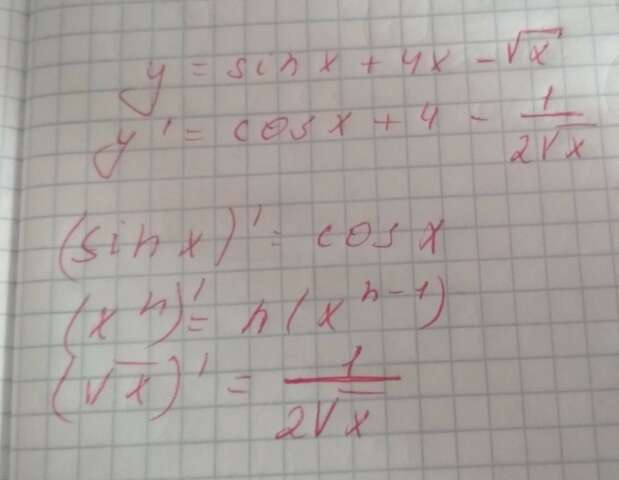 y = sin x + 4x - √x
y' = cos x + 4 - 1/(2√x)
(sin x)' = cos x
(x^n)' = n(x^(n-1))
(√x)' = 1/(2√x)